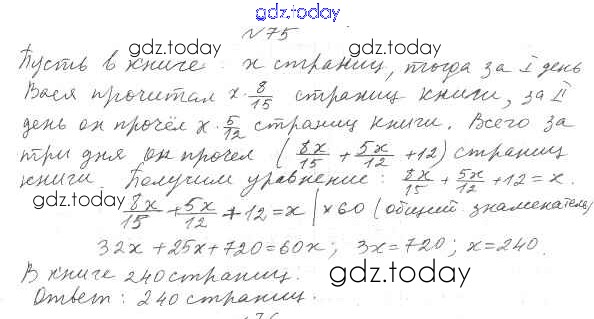 gdz.today
№75
gdz.today gdz.today
Пусть в книге x страниц, тогда за I день
Вася прочитал x·8/15 страниц книги, за II
день он прочёл x·5/12 страниц книги. Всего за
три дня он прочел (8x/15 + 5x/12 + 12) страниц
книги. Получим уравнение: 8x/15 + 5x/12 + 12 = x.
gdz.today gdz.today
8x/15 + 5x/12 + 12 = x |×60 (общий знаменатель)
32x + 25x + 720 = 60x; 3x = 720; x = 240.
В книге 240 страниц.
gdz.today
Ответ: 240 страниц.